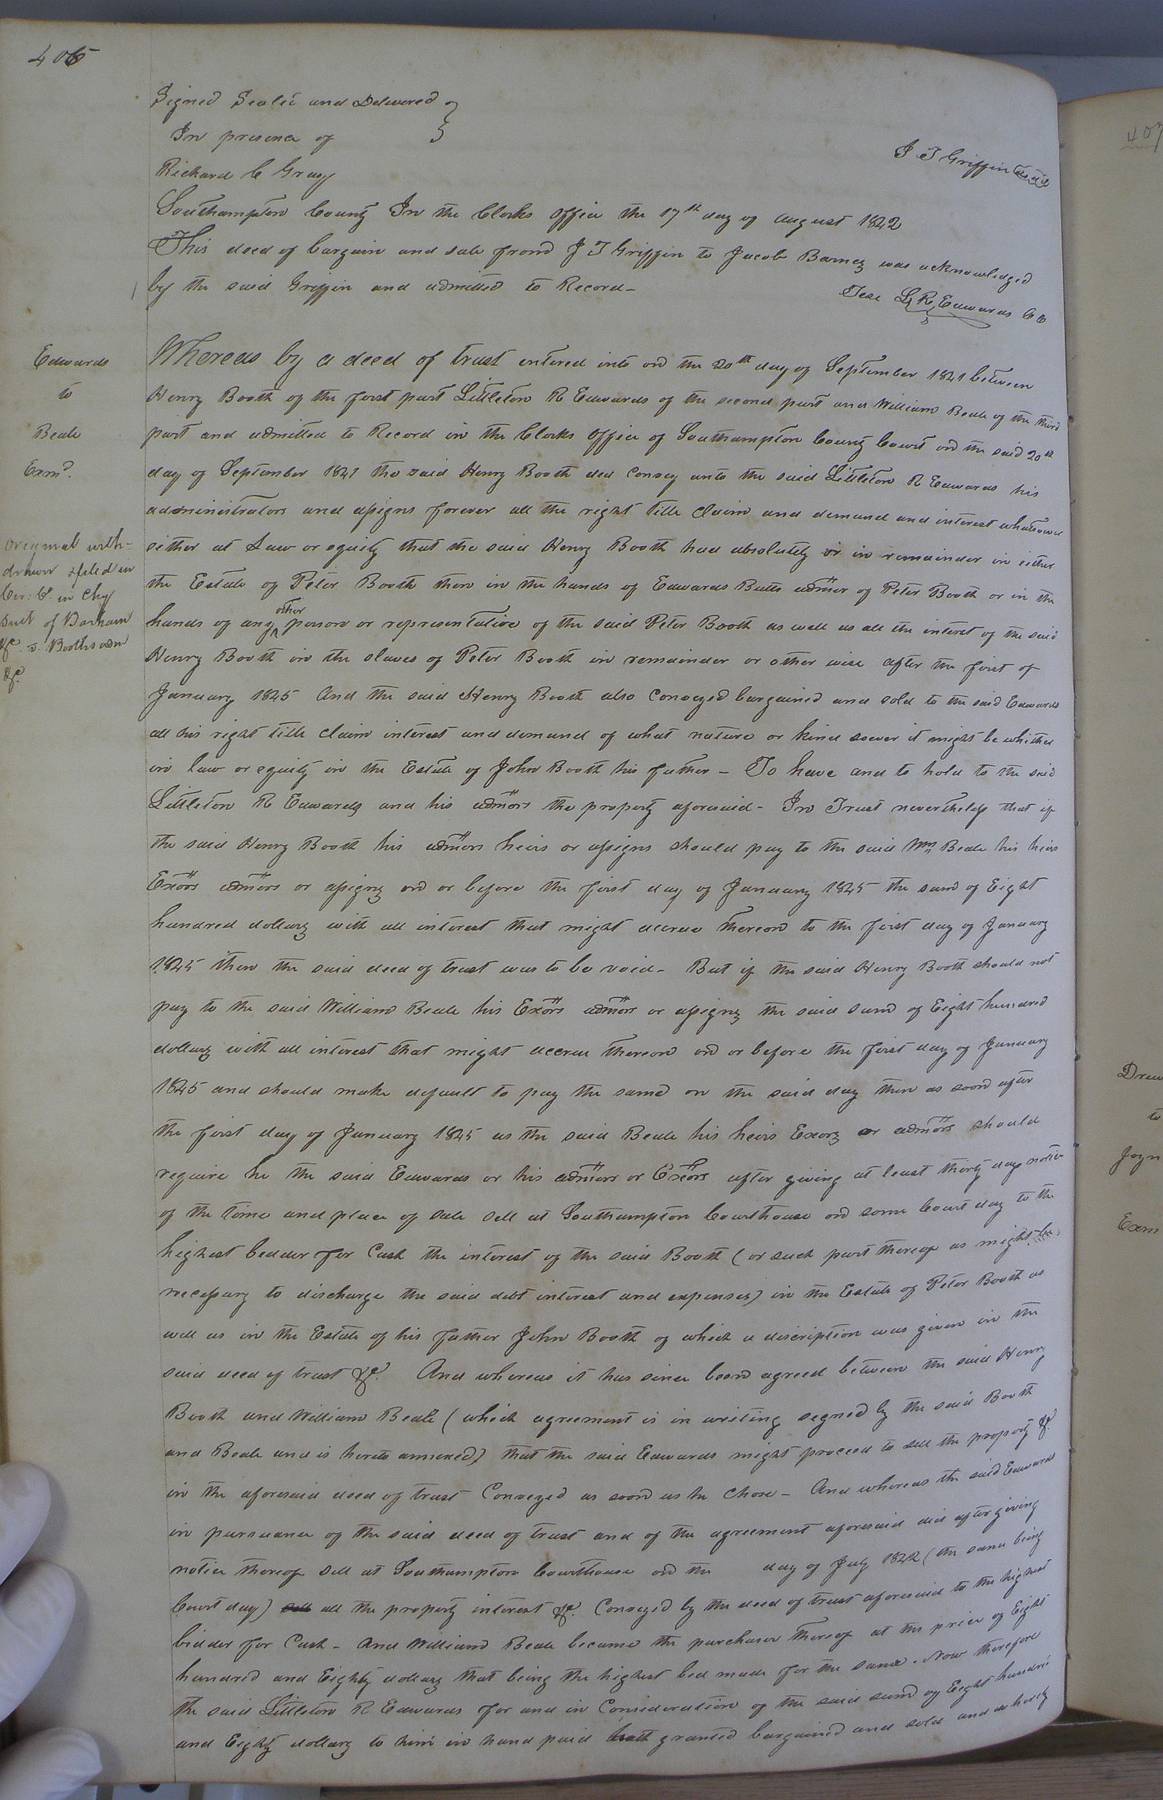 406
Signed Sealed and Delivered
In presence of
J T Griffin
Richard C Gray
Southampton County In the Clerks Office the 17th day of August 1842
This deed of bargain and sale from J T Griffin to Jacob Barnes was acknowledged
by the said Griffin and admitted to Record-
Teste L. R. Edwards CC
Edwards
to
Beale
Exmd.
original with-
drawn & filed in
Cir: Ct. in Chy
suit of Barham
&c vs Booths adm
&c.
Whereas by a deed of trust entered into on the 20th day of September 1841 between
Henry Booth of the first part Littleton R Edwards of the second part and William Beale of the third
part and admitted to Record in the Clerks Office of Southampton County Court on the said 20th
day of September 1841 the said Henry Booth did convey unto the said Littleton R Edwards his
administrators and assigns forever all the right title claim and demand and interest whatsoever
either at Law or equity that the said Henry Booth had absolutely or in remainder in either
the Estate of Peter Booth then in the hands of Edwards Butts admor of Peter Booth or in the
hands of any other person or representative of the said Peter Booth as well as all the interest of the said
Henry Booth in the slaves of Peter Booth in remainder or other wise after the first of
January 1845 And the said Henry Booth also conveyed bargained and sold to the said Edwards
all his right title claim interest and demand of what nature or kind soever it might be whether
in law or equity in the Estate of John Booth his father - To have and to hold to the said
Littleton R Edwards and his admors the property aforesaid - In Trust nevertheless that if
the said Henry Booth his admors heirs or assigns should pay to the said Wm Beale his heirs
Exors admors or assigns on or before the first day of January 1845 the sum of Eight
hundred dollars with all interest that might accrue thereon to the first day of January
1845 then the said deed of trust was to be void - But if the said Henry Booth should not
pay to the said William Beale his Exors admors or assigns the said sum of Eight hundred
dollars with all interest that might accrue thereon on or before the first day of January
1845 and should make default to pay the same on the said day then as soon after
the first day of January 1845 as the said Beale his heirs Exors or admors should
require he the said Edwards or his admors or Exors after giving at least thirty days notice
of the time and place of sale sell at Southampton Courthouse on some Court day to the
highest bidder for Cash the interest of the said Booth (or such part thereof as might be
necessary to discharge the said debt interest and expenses) in the Estate of Peter Booth as
well as in the Estate of his father John Booth of which a discription was given in the
said deed of trust &c. And whereas it has since been agreed between the said Henry
Booth and William Beale (which agreement is in writing signed by the said Booth
and Beale and is hereto annexed) that the said Edwards might proceed to sell the property &c.
in the aforesaid deed of trust Conveyed as soon as he chose - And whereas the said Edwards
in pursuance of the said deed of trust and of the agreement aforesaid did after giving
notice thereof sell at Southampton Courthouse on the day of July 1842 (the same being
Court day) all the property interest &c. Conveyed by the deed of trust aforesaid to the highest
bidder for Cash - And William Beale became the purchaser thereof at the price of Eight
hundred and Eighty dollars that being the highest bid made for the same. Now therefore
the said Littleton R Edwards for and in Consideration of the said sum of Eight hundred
and Eighty dollars to him in hand paid hath granted bargained and sold and doth hereby
407
Drew
to
Joyn
Exm